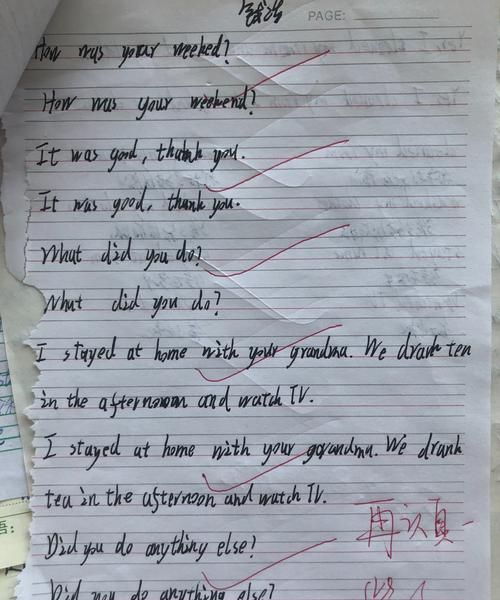 PAGE:
How was your weeked?
How was your weekend?
It was good, thank you.
It was good, thank you.
What did you do?
What did you do?
I stayed at home with your grandma. We drank tea
in the afternoon and watch TV.
I stayed at home with your grandma. We drank
tea in the afternoon and watch TV.
再认真一
Did you do anything else?
Did you do anything else?